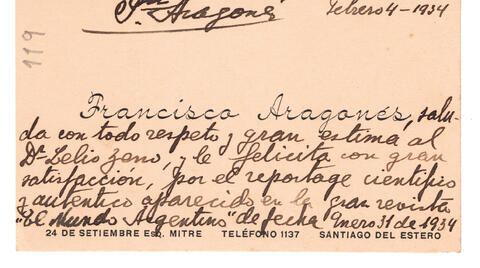 Sn
Fr. Aragonés
Febrero 4-1934
119
Francisco Aragonés, salu-
da con todo respeto y gran estima al
Dr. Lelio Zeno, y le felicita con gran
satisfacción, por el reportage científico
y autentico aparecido en la gran revista
"El Mundo Argentino" de fecha Enero 31 de 1934
24 DE SETIEMBRE ESQ. MITRE TELÉFONO 1137 SANTIAGO DEL ESTERO